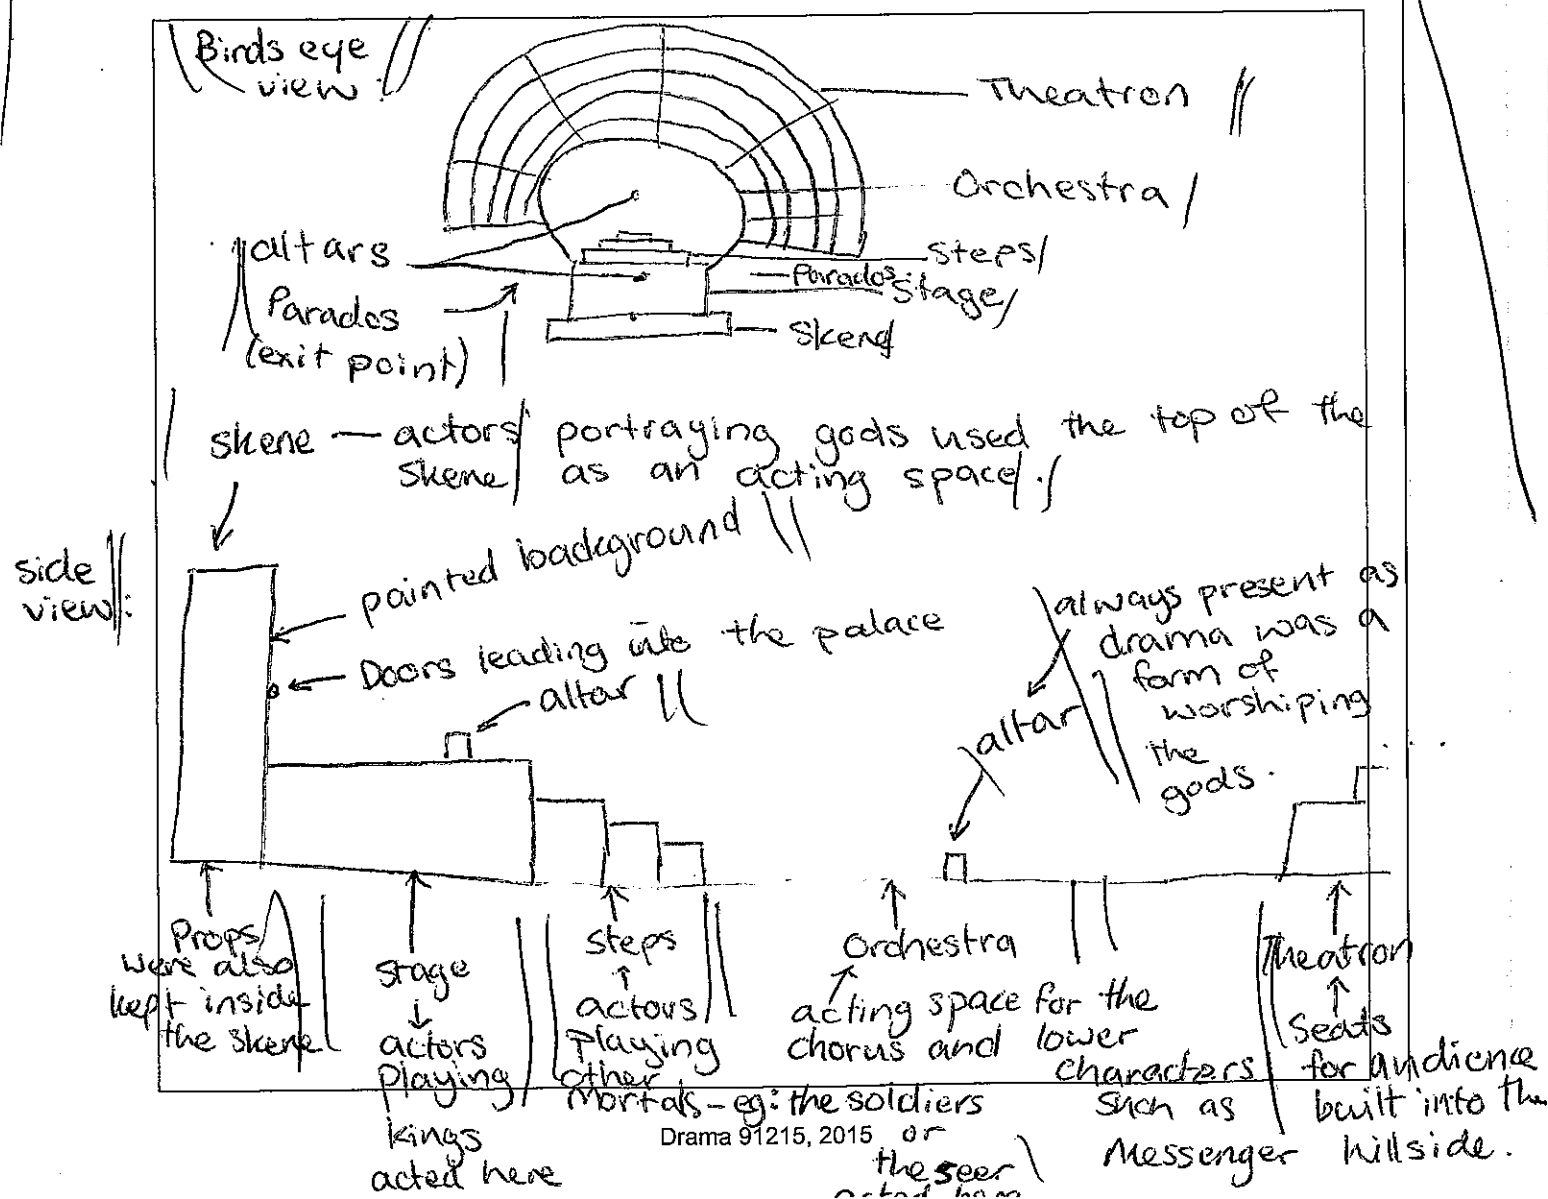 Birds eye
view:
Theatron
Orchestra
altars
steps
Parados
Stage
Parados
(exit point)
Skene
skene — actors portraying gods used the top of the
skene as an acting space.
side
view:
painted background
Doors leading into the palace
altar
always present as
drama was a
form of
worshiping
the
gods.
altar
Props
were also
kept inside
the skene
stage
actors
playing
kings
acted here
Steps
actors
playing
other
mortals - eg: the soldiers
or
the seer
Orchestra
acting space for the
chorus and lower
characters
such as
Messenger
Theatron
Seats
for audience
built into the
hillside.
Drama 91215, 2015